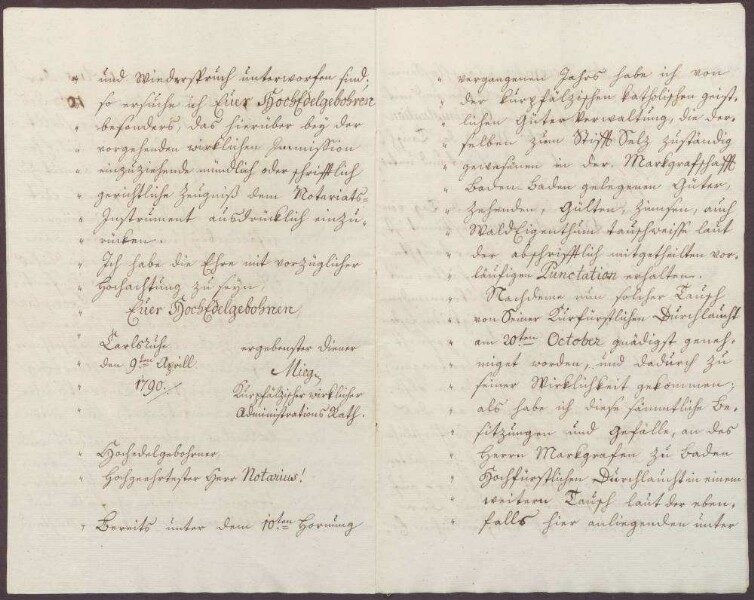 und Wiederspruch unterworfen sind,
so ersuche ich Euer HochEdelgebohren
besonders, das hierüber bey der
vorgehenden wirklichen Immission
einzuziehende mündlich oder schrifftlich
gerichtliche Zeugniß dem Notariats-
Instrument ausdrücklich einzu-
rücken.
Ich habe die Ehre mit vorzüglicher
Hochachtung zu seyn,
Euer HochEdelgebohren,
Carlsruhe ergebenster Diener
den 9ten Aprill Mieg,
1790. Kurpfälzischer wirklicher
Administrations Rath.
Hochedelgebohrner,
Hochgeehrtester Herr Notarius!
Bereits unter dem 10ten Hornung
vergangenen Jahrs habe ich von
der kurpfälzischen katholischen geist-
lichen Güter Verwaltung, die der-
selben zum Stifft Selz zuständig
gewesenen in der Markgrafschafft
Baden Baden gelegenen Güter,
Zehenden, Gülten, Zinnsen, auch
Wald Eigenthum tauschweisse laut
der abschrifftlich mitgetheilten vor-
läufigen Punctation erhalten.
Nachdeme nun solcher Tausch
von Seiner Kurfürstlichen Durchlaucht
am 20ten October gnädigst geneh-
miget worden, und dadurch zu
seiner Wirklichkeit gekommen;
als habe ich diese sämmtliche Be-
sitzungen und Gefälle, an des
Herrn Markgrafen zu Baden
Hochfürstlichen Durchlaucht in einem
weitern Tausch laut der eben-
falls hier anliegenden unter